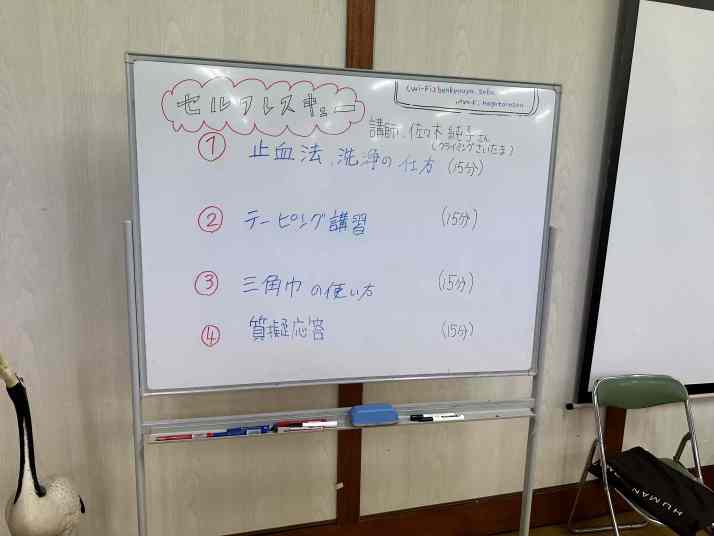 セルフレスキュー
(Wi-Fi)
講師、佐々木 純子さん
(クライミングさいたま)
① 止血法、洗浄の仕方 (15分)
② テーピング講習 (15分)
③ 三角巾の使い方 (15分)
④ 質擬応答 (15分)
HUMAN